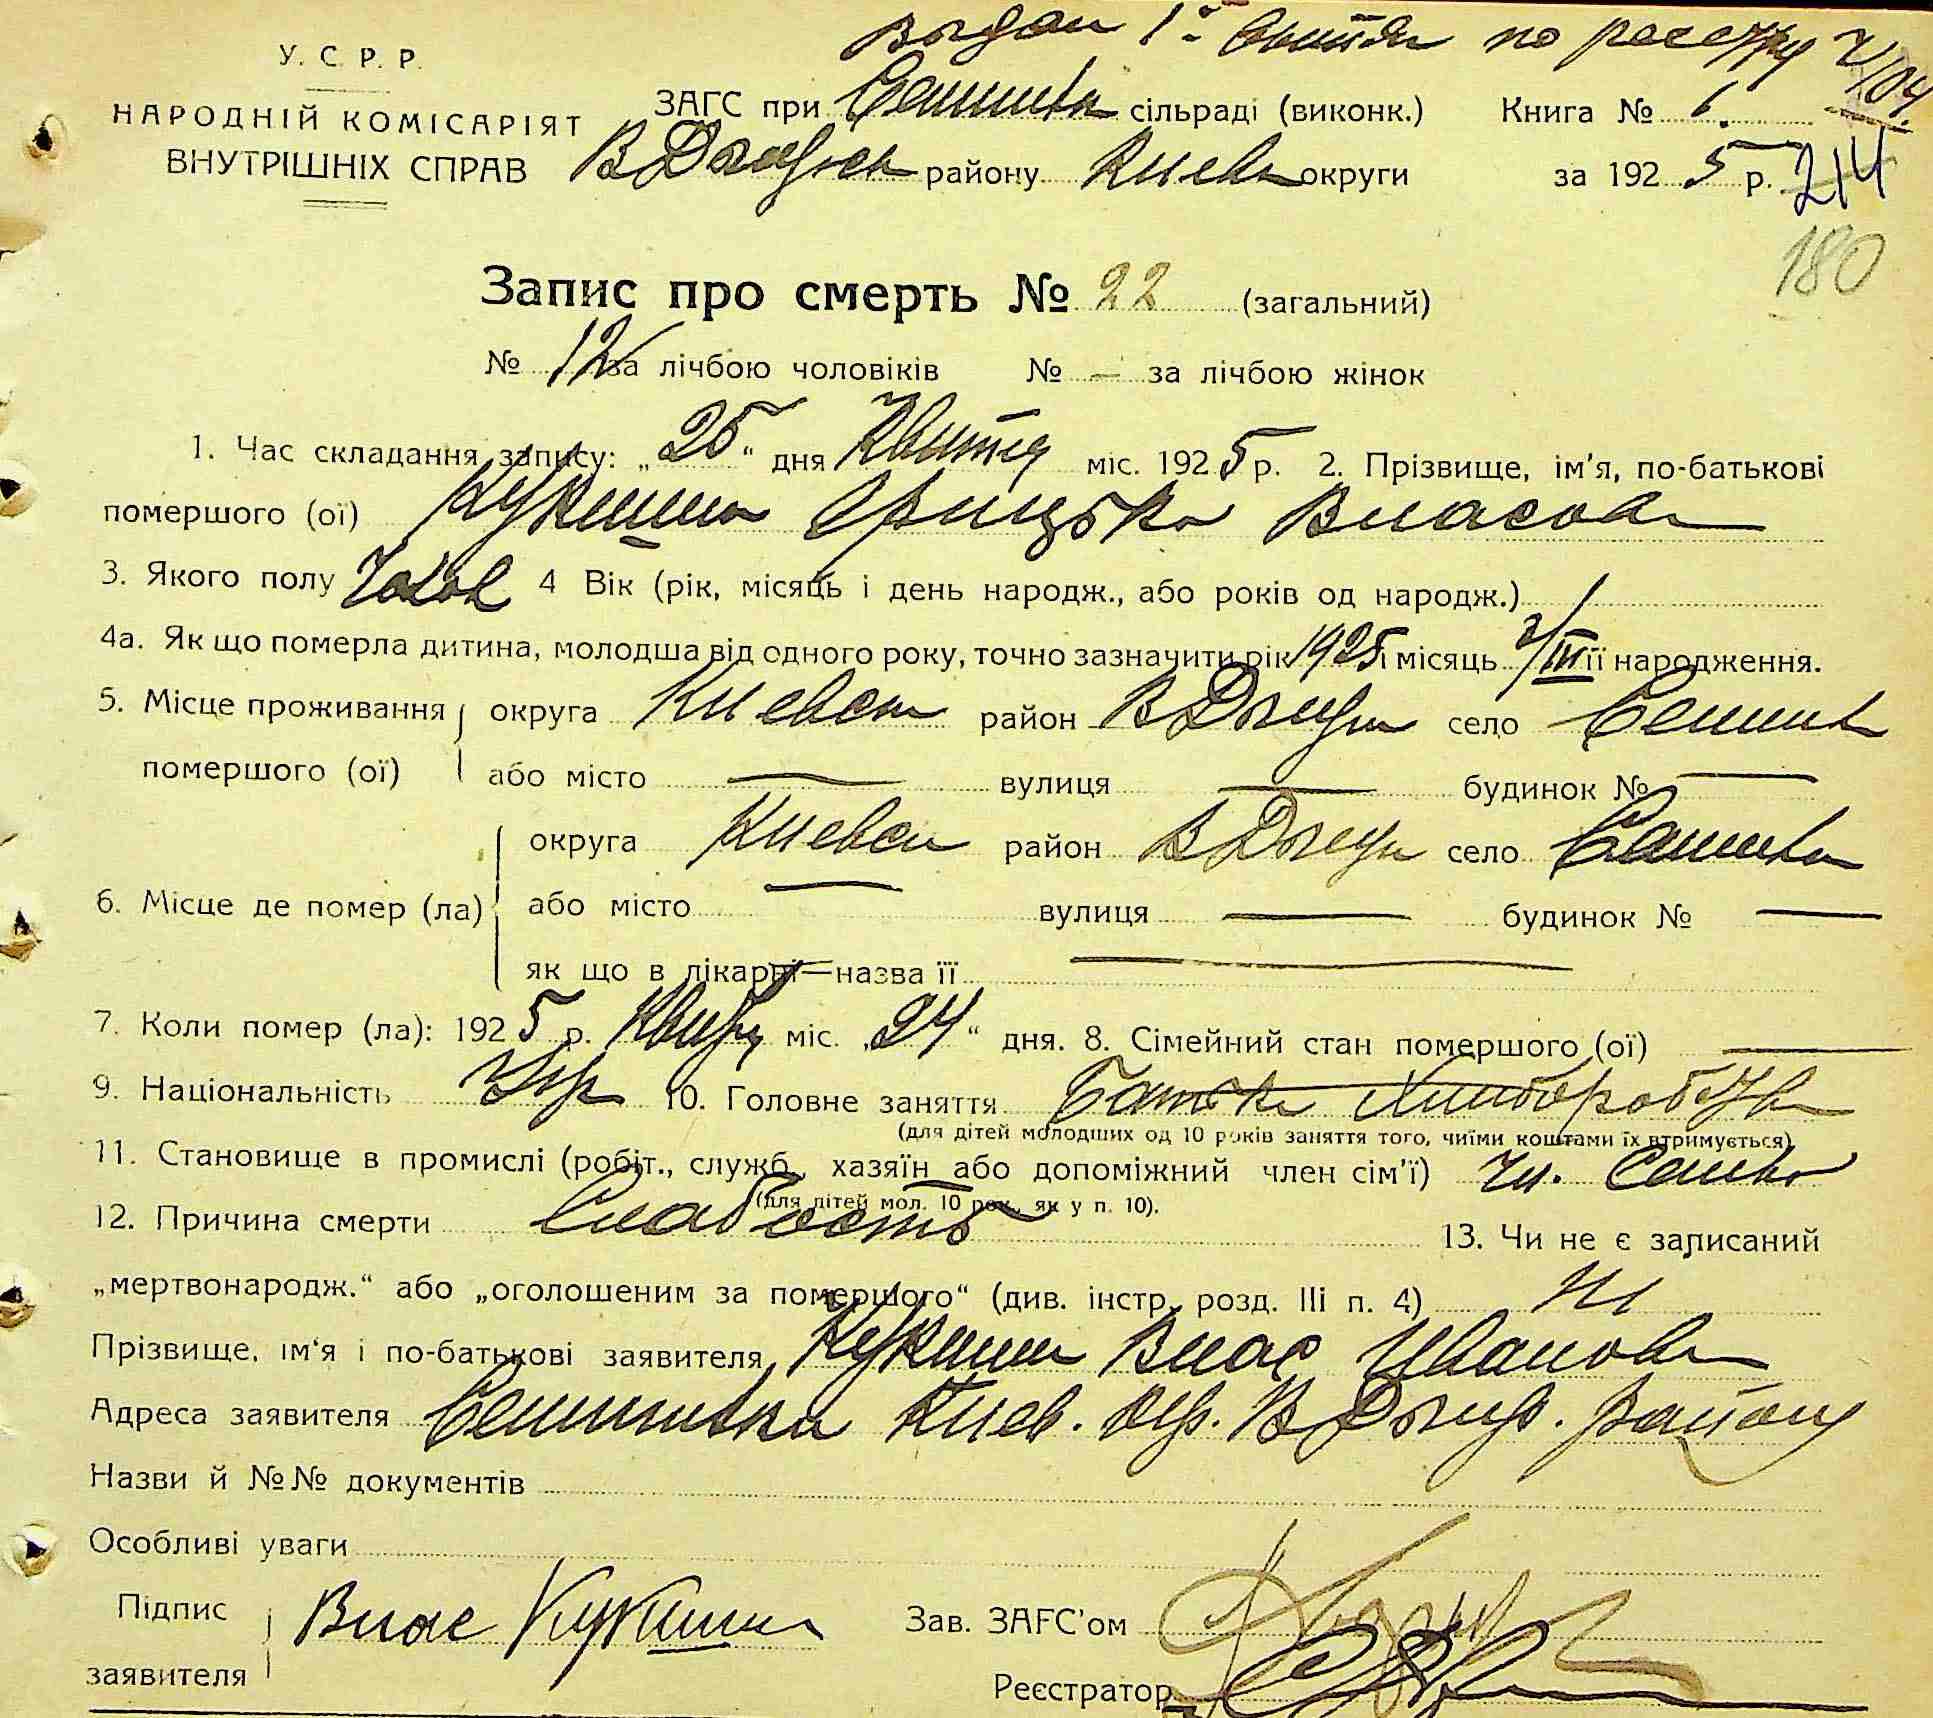 Выдан 1й по реестру
У. С. Р. Р.
НАРОДНІЙ КОМІСАРІЯТ
ВНУТРІШНІХ СПРАВ
ЗАГС при сільраді (виконк.) Книга № 6.
В Дымерск району Киевск округи за 192 5 р. 214
180
Запис про смерть № 22 (загальний)
№ 12 за лічбою чоловіків № — за лічбою жінок
1. Час складання запису: „25“ дня Квитня міс. 192 5 р. 2. Прізвище, ім'я, по-батькові
помершого (ої) Грицько Власов
3. Якого полу Чолов 4 Вік (рік, місяць і день народж., або років од народж.)
4а. Як що померла дитина, молодша від одного року, точно зазначити рік 1925 і місяць /III її народження.
5. Місце проживання округа Киевск район В Дымер село
помершого (ої) або місто — вулиця — будинок № —
6. Місце де помер (ла) округа Киевск район В Дымер село
або місто — вулиця — будинок № —
як що в лікарні—назва її —
7. Коли помер (ла): 192 5 р. Квит міс. „24“ дня. 8. Сімейний стан помершого (ої) —
9. Національність Укр 10. Головне заняття Батько Хлиборобув
(для дітей молодших од 10 років заняття того, чиїми коштами їх втримується)
11. Становище в промислі (робіт., служб., хазяїн або допоміжний член сім'ї) чл.
(для дітей мол. 10 рок., як у п. 10).
12. Причина смерти Слабость 13. Чи не є записаний
„мертвонародж.“ або „оголошеним за помершого“ (див. інстр. розд. III п. 4) Ні
Прізвище, ім'я і по-батькові заявителя Влас Иванов
Адреса заявителя Киев. окр. В Дымер. району
Назви й №№ документів
Особливі уваги
Підпис заявителя Влас
Зав. ЗАГС'ом
Реєстратор